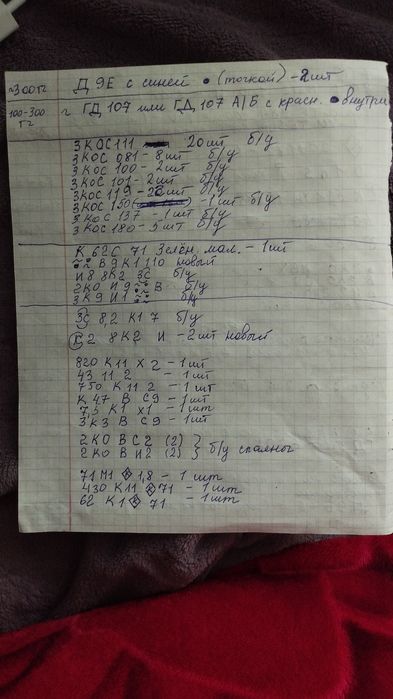 ~300гг Д 9Е с синей • (точкой) - 2шт
100-300 Гг ГД 107 или ГД 107 А/Б с красн. • внутри
3КОС111 20шт б/у
3КОС 081 - 8шт б/у
3КОС 100 - 2шт б/у
3КОС 101 - 2шт б/у
3КОС 119 - шт б/у
3КОС 150 - 1шт б/у
3КОС 137 - 1шт б/у
3КОС 180 - 5шт б/у
К 62С 71 Зелён. мал. - 1шт
В9К1110 новый
И8 8К2 3С б/у
2К0 И9 В б/у
3К9 И1 б/у
3С 8,2 К1 7 б/у
Г2 8К2 И - 2шт новый
820 К11 Х2 - 1шт
43 11 2 - 1шт
750 К11 2 - 1шт
К 47 В С9 - 1шт
7,5 К1 х1 - 1шт
3К3 В С9 - 1шт
2К0 ВС2 (2)
2К0 В И2 (2) } б/у спаяны
71М1 К 1,8 - 1шт
430 К11 К 71 - 1шт
62 К1 К 71 - 1шт